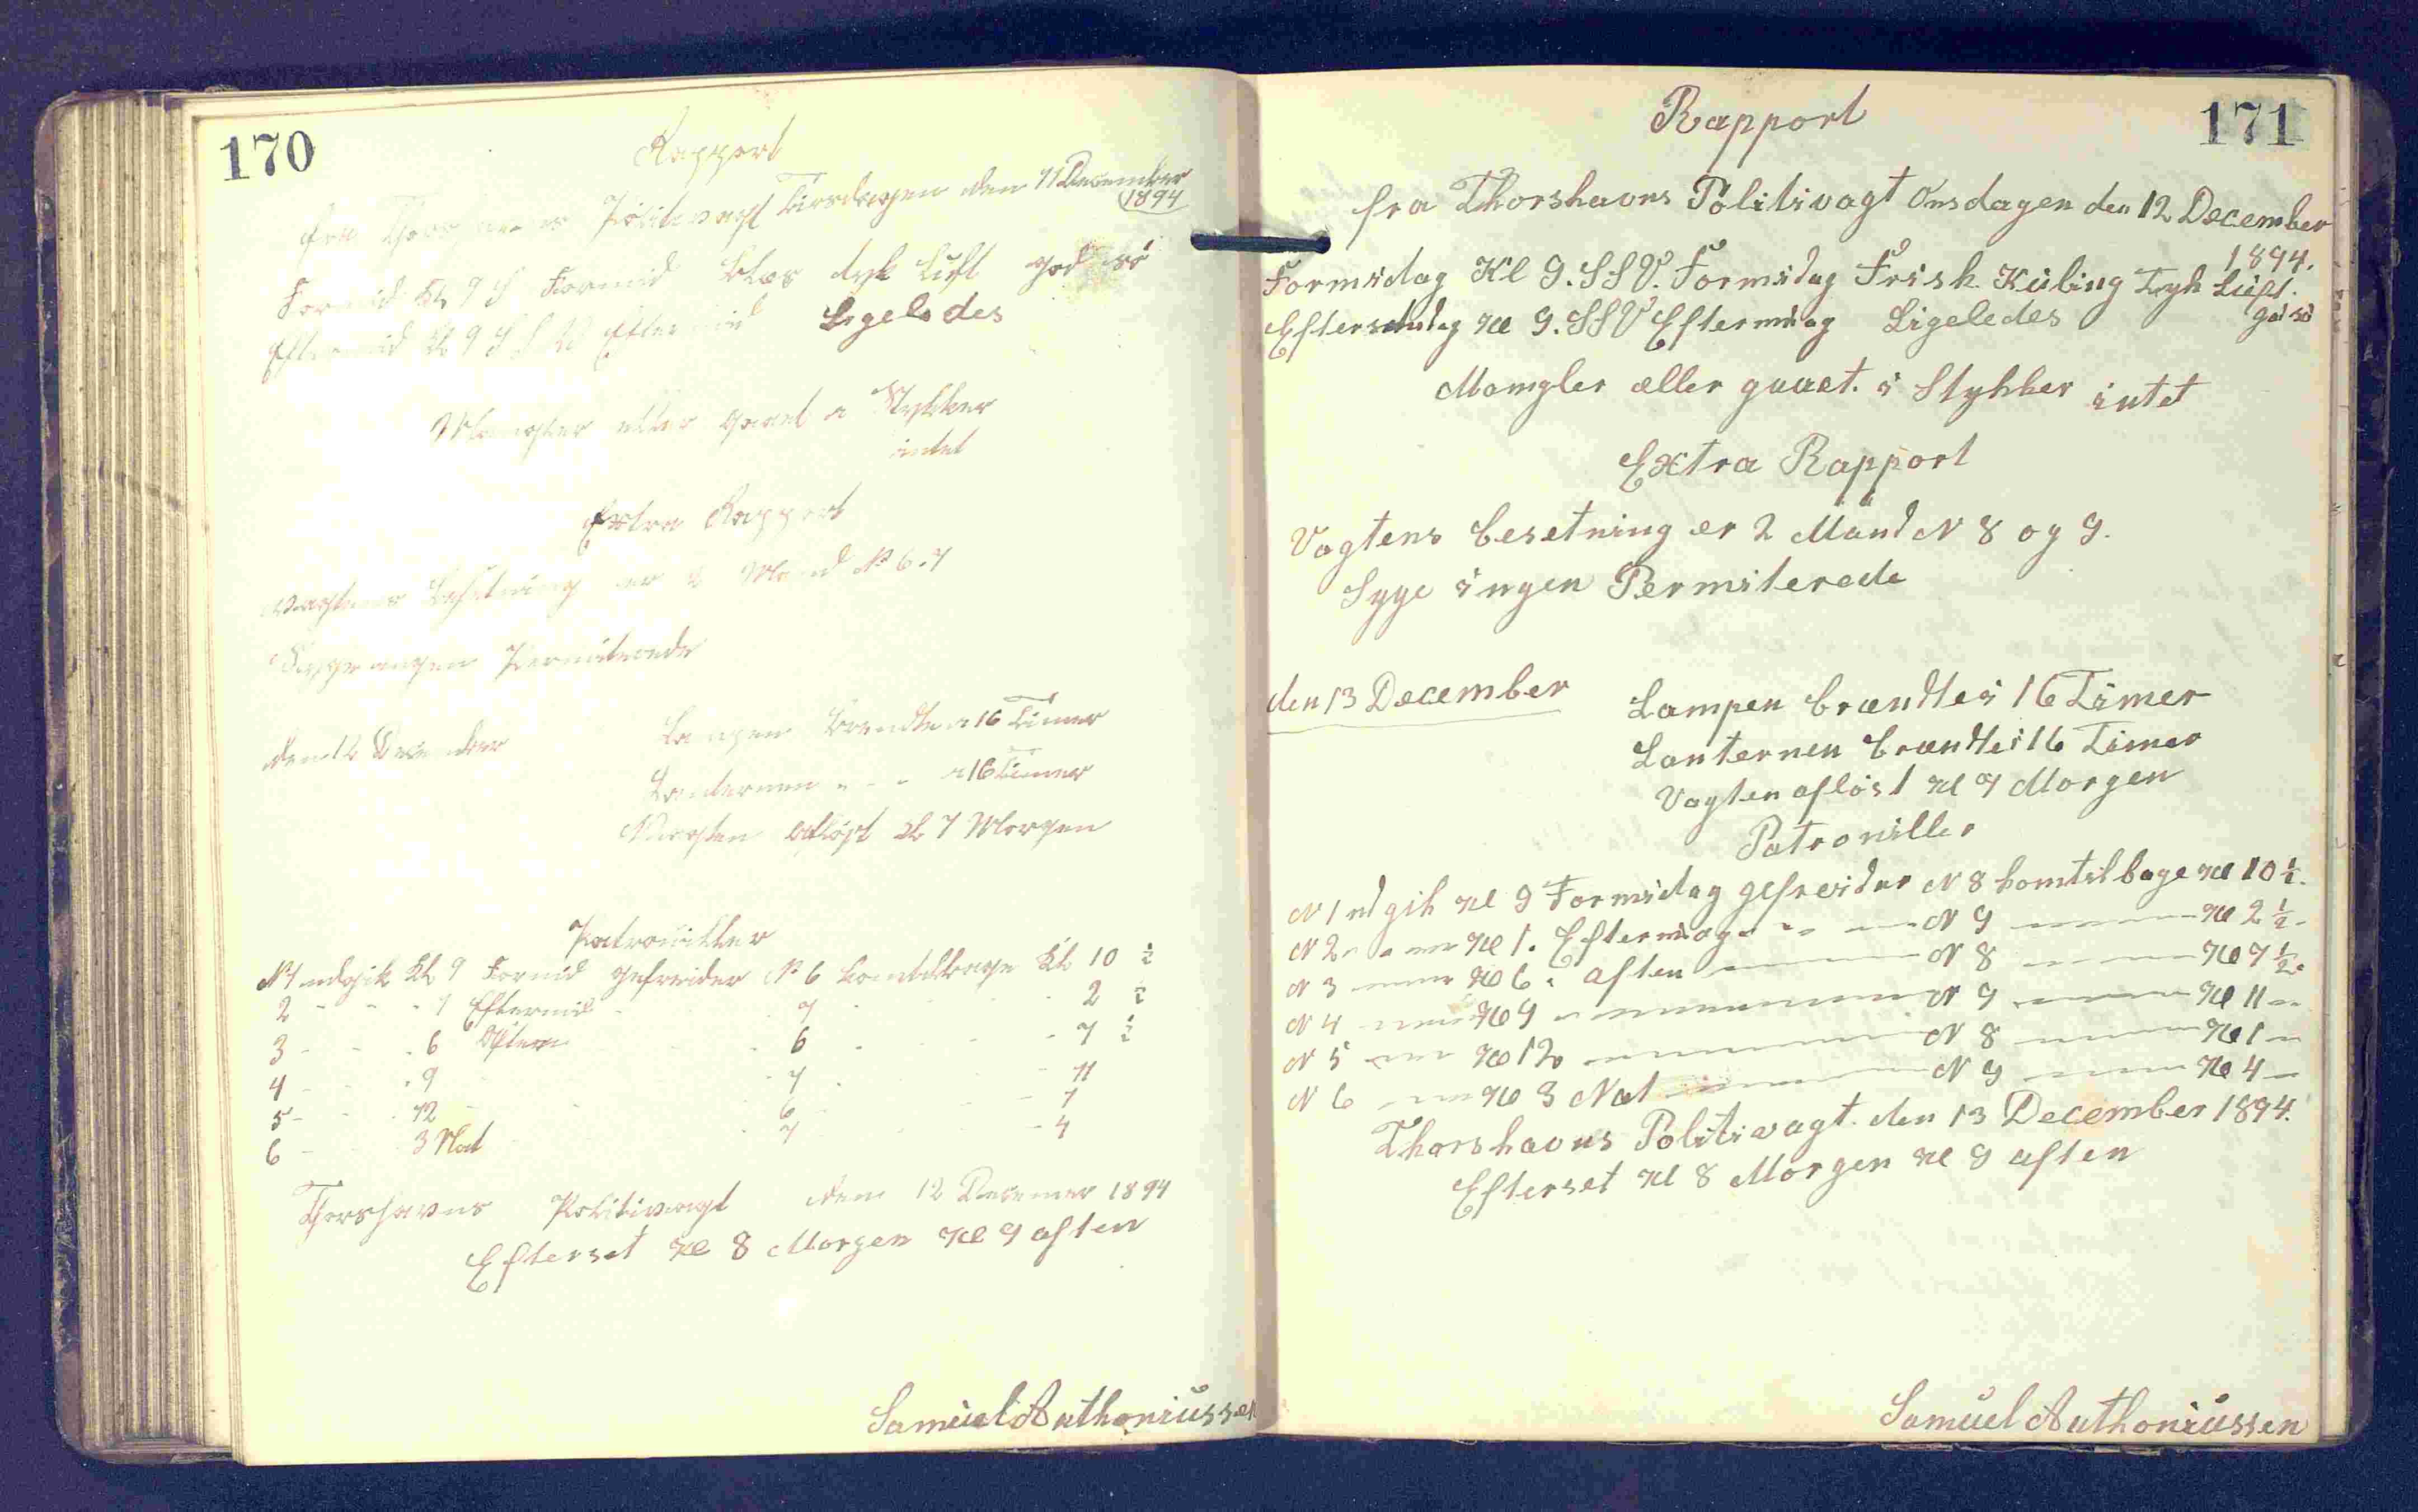 170
Rapport
fra Thorshavns Politivagt Tirsdagen den 11 December
1894
Formid Kl 9 S Formid blæs tyk Luft god sö
Eftermid Kl 9 S S V Eftermid Ligeledes
Mangler eller gaaet i Stykker
intet
Extra Rapport
Vagtens Besetning er 2 Mand No 6.7
Syge ingen Permiterede
den 12 December
Lampen brendte i 16 Timer
Lanternen " - - i 16 Timer
Vagten aflöst Kl 7 Morgen
Patrouiller
No 1 udgik Kl 9 Formid gefreider No 6 komtilbage Kl 10 ½
2 - - - 1 Eftermid - 7 - - 2 ½
3 - - - 6 Aften - 6 - - 7 ½
4 - - - 9 - 7 - - 11
5 - - - 12 - 6 - - 1
6 - - 3 Nat - 7 - 4
Thorshavns Politivagt den 12 Decemer 1894
Efterset Kl 8 Morgen Kl 9 aften
Samuel Anthoniussen
171
Rapport
fra Thorshavns Politivagt Onsdagen den 12 December
1894.
Formidag Kl 9. SSV. Formidag Frisk Kuling Tyk Luft.
god sö
Kl 9. SSV Eftermidag Ligeledes
Mangler eller gaaet. i Stykker intet
Extra Rapport
Vagtens besetning er 2 Mand N 8 og 9.
Syge ingen Permiterede
den 13 December
Lampen brændte i 16 Timer
Lanternen brændte i 16 Timer
Vagten aflöst Kl 7 Morgen
Patroniller
N 1 ud gik Kl 9 Formidag gefreider N 8 komtilbage Kl 10 ½.
N 2 - - - Kl 1. Eftermidag - - - N 9 - - - Kl 2 ½ -
N 3 - - - Kl 6. aften - - - N 8 - - - Kl 7 ½.
N 4 - - - Kl 9 - - - N 9 - - - Kl 11 -
N 5 - - - Kl 12 - - - N 8 - - - Kl 1 -
N 6 - - - Kl 3 Nat - - - N 9 - - - Kl 4 -
Thorshavns Politivagt. den 13 December 1894.
Efterset Kl 8 Morgen Kl 9 aften
Samuel Anthoniussen